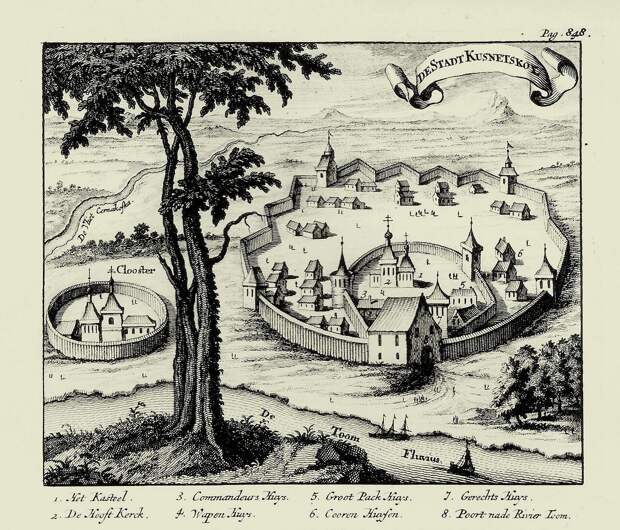 Pag. 848.
DE STADT KUSNETSKOY
De Vliet
Clooster
De Toom Fluvius
1. Het Kasteel. 3. Commandeurs Huys. 5. Groot Pack Huys. 7. Gerechts Huys.
2. De Hooft Kerck. 4. Wapen Huys. 6. Coeren Huysen. 8. Poort na de Rivier Toom.